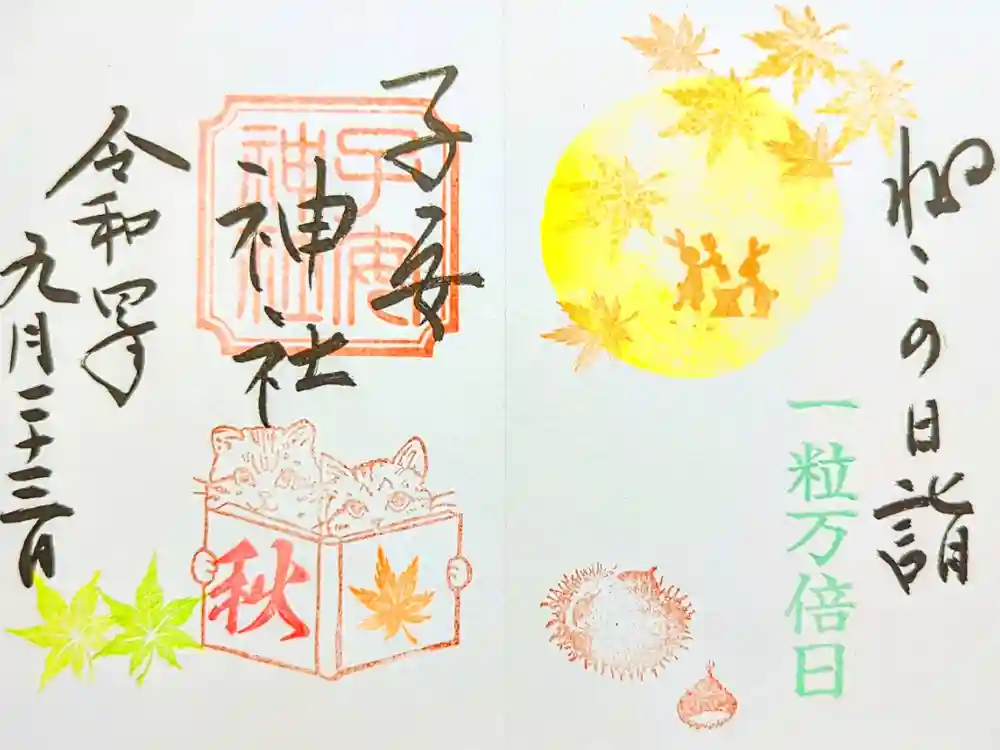 ねこの日詣
一粒万倍日
子安
神社
子安
神社
秋
令和四年
九月二十三日